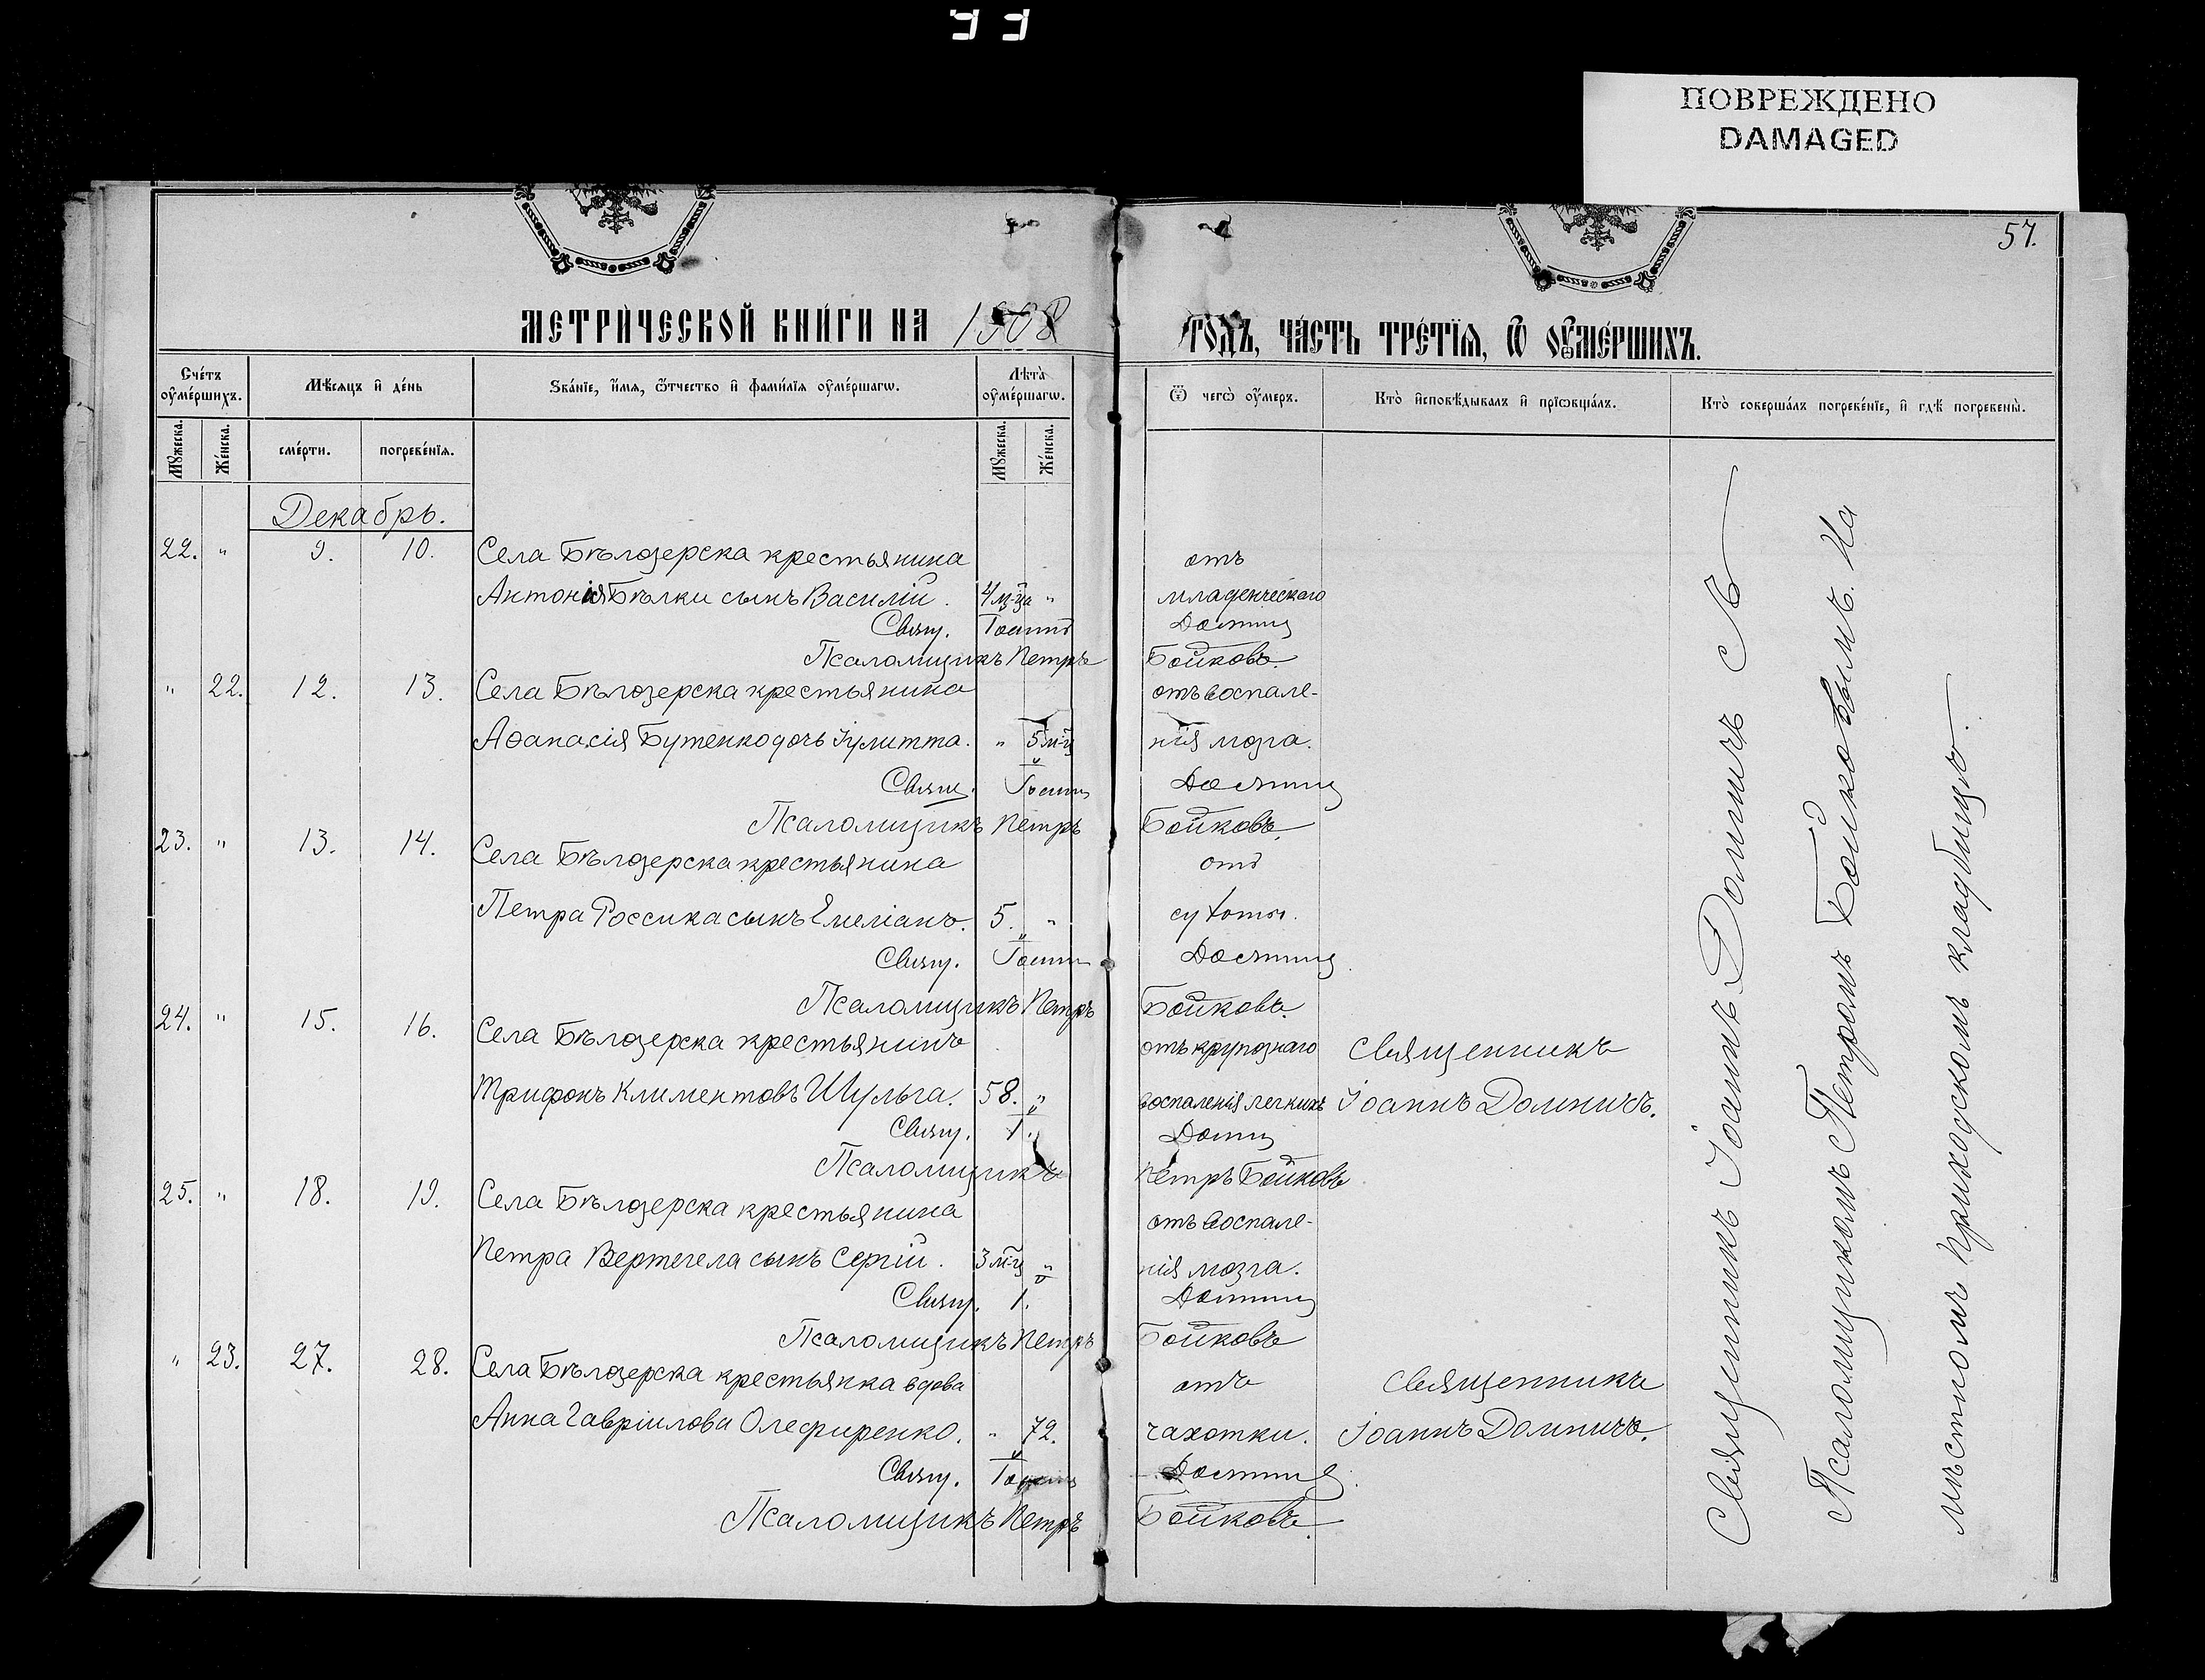 ПОВРЕЖДЕНО
DAMAGED
57.
МЕТРИЧЕСКОЙ КНИГИ НА 1908
ГОДЪ, ЧАСТЬ ТРЕТІЯ, Ѿ ОУМЕРШИХЪ.
Счетъ оумершихъ.
Мѣсяцъ и день
Званіе, имя, ѿтчество и фамилія оумершагѡ.
Лѣта оумершагѡ.
Ѿ чегѡ оумеръ.
Кто исповѣдывалъ и пріѡбщалъ.
Кто совершалъ погребеніе, и гдѣ погребены.
Мужеска.
Женска.
смерти.
погребенія.
Мужеска.
Женска.
Декабрь.
22. " 9. 10. Села Бѣлозерска крестьянина отъ
Антонія Бѣлки сынъ Василій. 4 м-ца " младенческаго
Свящ. Іоаннъ
Псаломщикъ Петръ Бойковъ.
" 22. 12. 13. Села Бѣлозерска крестьянина отъ воспале-
Аѳанасія Бутенко дочь Іулитта. " 5 м-ц нія мозга.
Свящ. Іоаннъ
Псаломщикъ Петръ Бойковъ.
23. " 13. 14. Села Бѣлозерска крестьянина отъ
Петра Россика сынъ Емеліанъ. 5. " сухоты.
Свящ. Іоаннъ
Псаломщикъ Петръ Бойковъ.
24. " 15. 16. Села Бѣлозерска крестьянинъ отъ крупознаго Священникъ
Трифонъ Климентовъ Шульга. 58. " воспаленія легкихъ Іоаннъ Домничъ.
Свящ. І.
Псаломщикъ Петръ Бойковъ
25. " 18. 19. Села Бѣлозерска крестьянина отъ воспале-
Петра Вертегела сынъ Сергій. 3 м-ц " нія мозга.
Свящ. І.
Псаломщикъ Петръ Бойковъ
" 23. 27. 28. Села Бѣлозерска крестьянка вдова отъ Священникъ
Анна Гавріилова Олефиренко. " 72. чахотки. Іоаннъ Домничъ.
Свящ. Іоаннъ
Псаломщикъ Петръ Бойковъ.
Священникъ Іоаннъ Домничъ съ
Псаломщикомъ Петромъ Бойковымъ. На
мѣстномъ приходскомъ кладбищѣ.